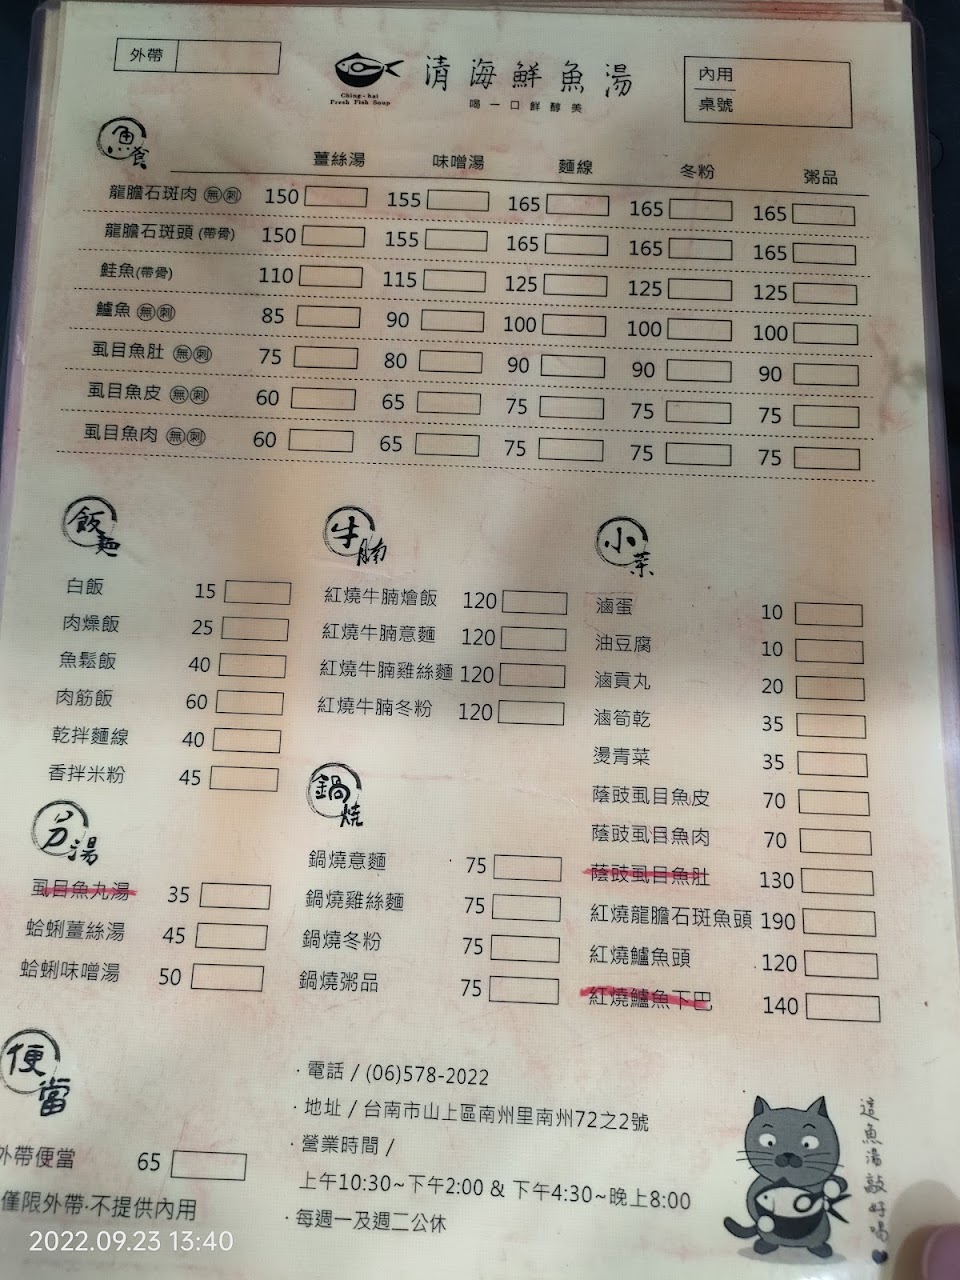 外帶
清海鮮魚湯
Ching-hai
Fresh Fish Soup
喝一口鮮醇美
內用
桌號
魚食
薑絲湯 味噌湯 麵線 冬粉 粥品
龍膽石斑肉 無刺 150 155 165 165 165
龍膽石斑頭(帶骨) 150 155 165 165 165
鮭魚(帶骨) 110 115 125 125 125
鱸魚 無刺 85 90 100 100 100
虱目魚肚 無刺 75 80 90 90 90
虱目魚皮 無刺 60 65 75 75 75
虱目魚肉 無刺 60 65 75 75 75
飯麵
白飯 15
肉燥飯 25
魚鬆飯 40
肉筋飯 60
乾拌麵線 40
香拌米粉 45
牛腩
紅燒牛腩燴飯 120
紅燒牛腩意麵 120
紅燒牛腩雞絲麵 120
紅燒牛腩冬粉 120
小菜
滷蛋 10
油豆腐 10
滷貢丸 20
滷筍乾 35
燙青菜 35
蔭豉虱目魚皮 70
蔭豉虱目魚肉 70
蔭豉虱目魚肚 130
紅燒龍膽石斑魚頭 190
紅燒鱸魚頭 120
紅燒鱸魚下巴 140
湯
虱目魚丸湯 35
蛤蜊薑絲湯 45
蛤蜊味噌湯 50
鍋燒
鍋燒意麵 75
鍋燒雞絲麵 75
鍋燒冬粉 75
鍋燒粥品 75
便當
外帶便當 65
僅限外帶·不提供內用
·電話 / (06)578-2022
·地址 / 台南市山上區南州里南州72之2號
·營業時間 /
上午10:30~下午2:00 & 下午4:30~晚上8:00
·每週一及週二公休
這魚湯敲好喝
2022.09.23 13:40